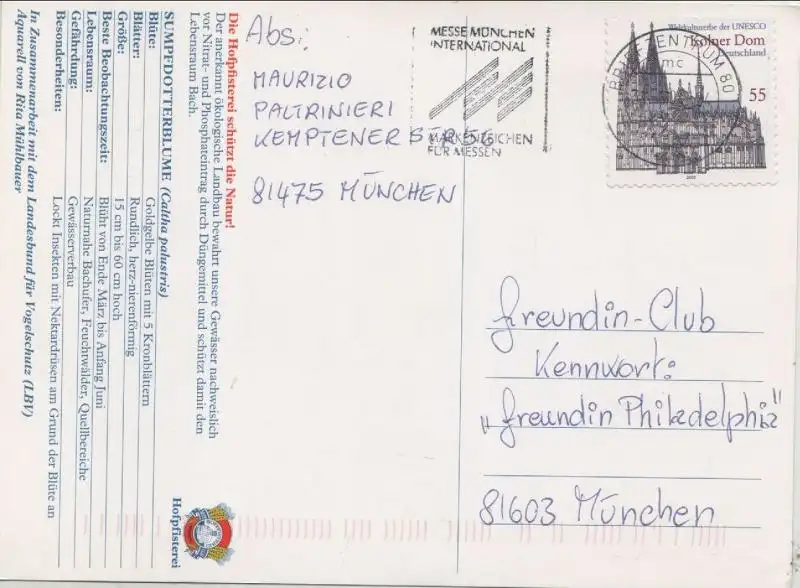 Die Hofpfisterei schützt die Natur!
Der anerkannt ökologische Landbau bewahrt unsere Gewässer nachweislich
vor Nitrat- und Phosphateintrag durch Düngemittel und schützt damit den
Lebensraum Bach.
SUMPFDOTTERBLUME (Caltha palustris)
Blüte: Goldgelbe Blüten mit 5 Kronblättern
Blätter: Rundlich, herz-nierenförmig
Größe: 15 cm bis 60 cm hoch
Beste Beobachtungszeit: Blüht von Ende März bis Anfang Juni
Lebensraum: Naturnahe Bachufer, Feuchtwälder, Quellbereiche
Gefährdung: Gewässerverbau
Besonderheiten: Lockt Insekten mit Nektardrüsen am Grund der Blüte an
In Zusammenarbeit mit dem Landesbund für Vogelschutz (LBV)
Aquarell von Rita Mühlbauer
Hofpfisterei
Abs:
MAURIZIO
PALTRINIERI
KEMPTENER
81475 MÜNCHEN
MESSE MÜNCHEN
INTERNATIONAL
MARKENZEICHEN
FÜR MESSEN
Weltkulturerbe der UNESCO
Kölner Dom
Deutschland
55
BRIEFZENTRUM 80
mc
freundin-Club
Kennwort:
„freundin Philadelphia"
81603 München